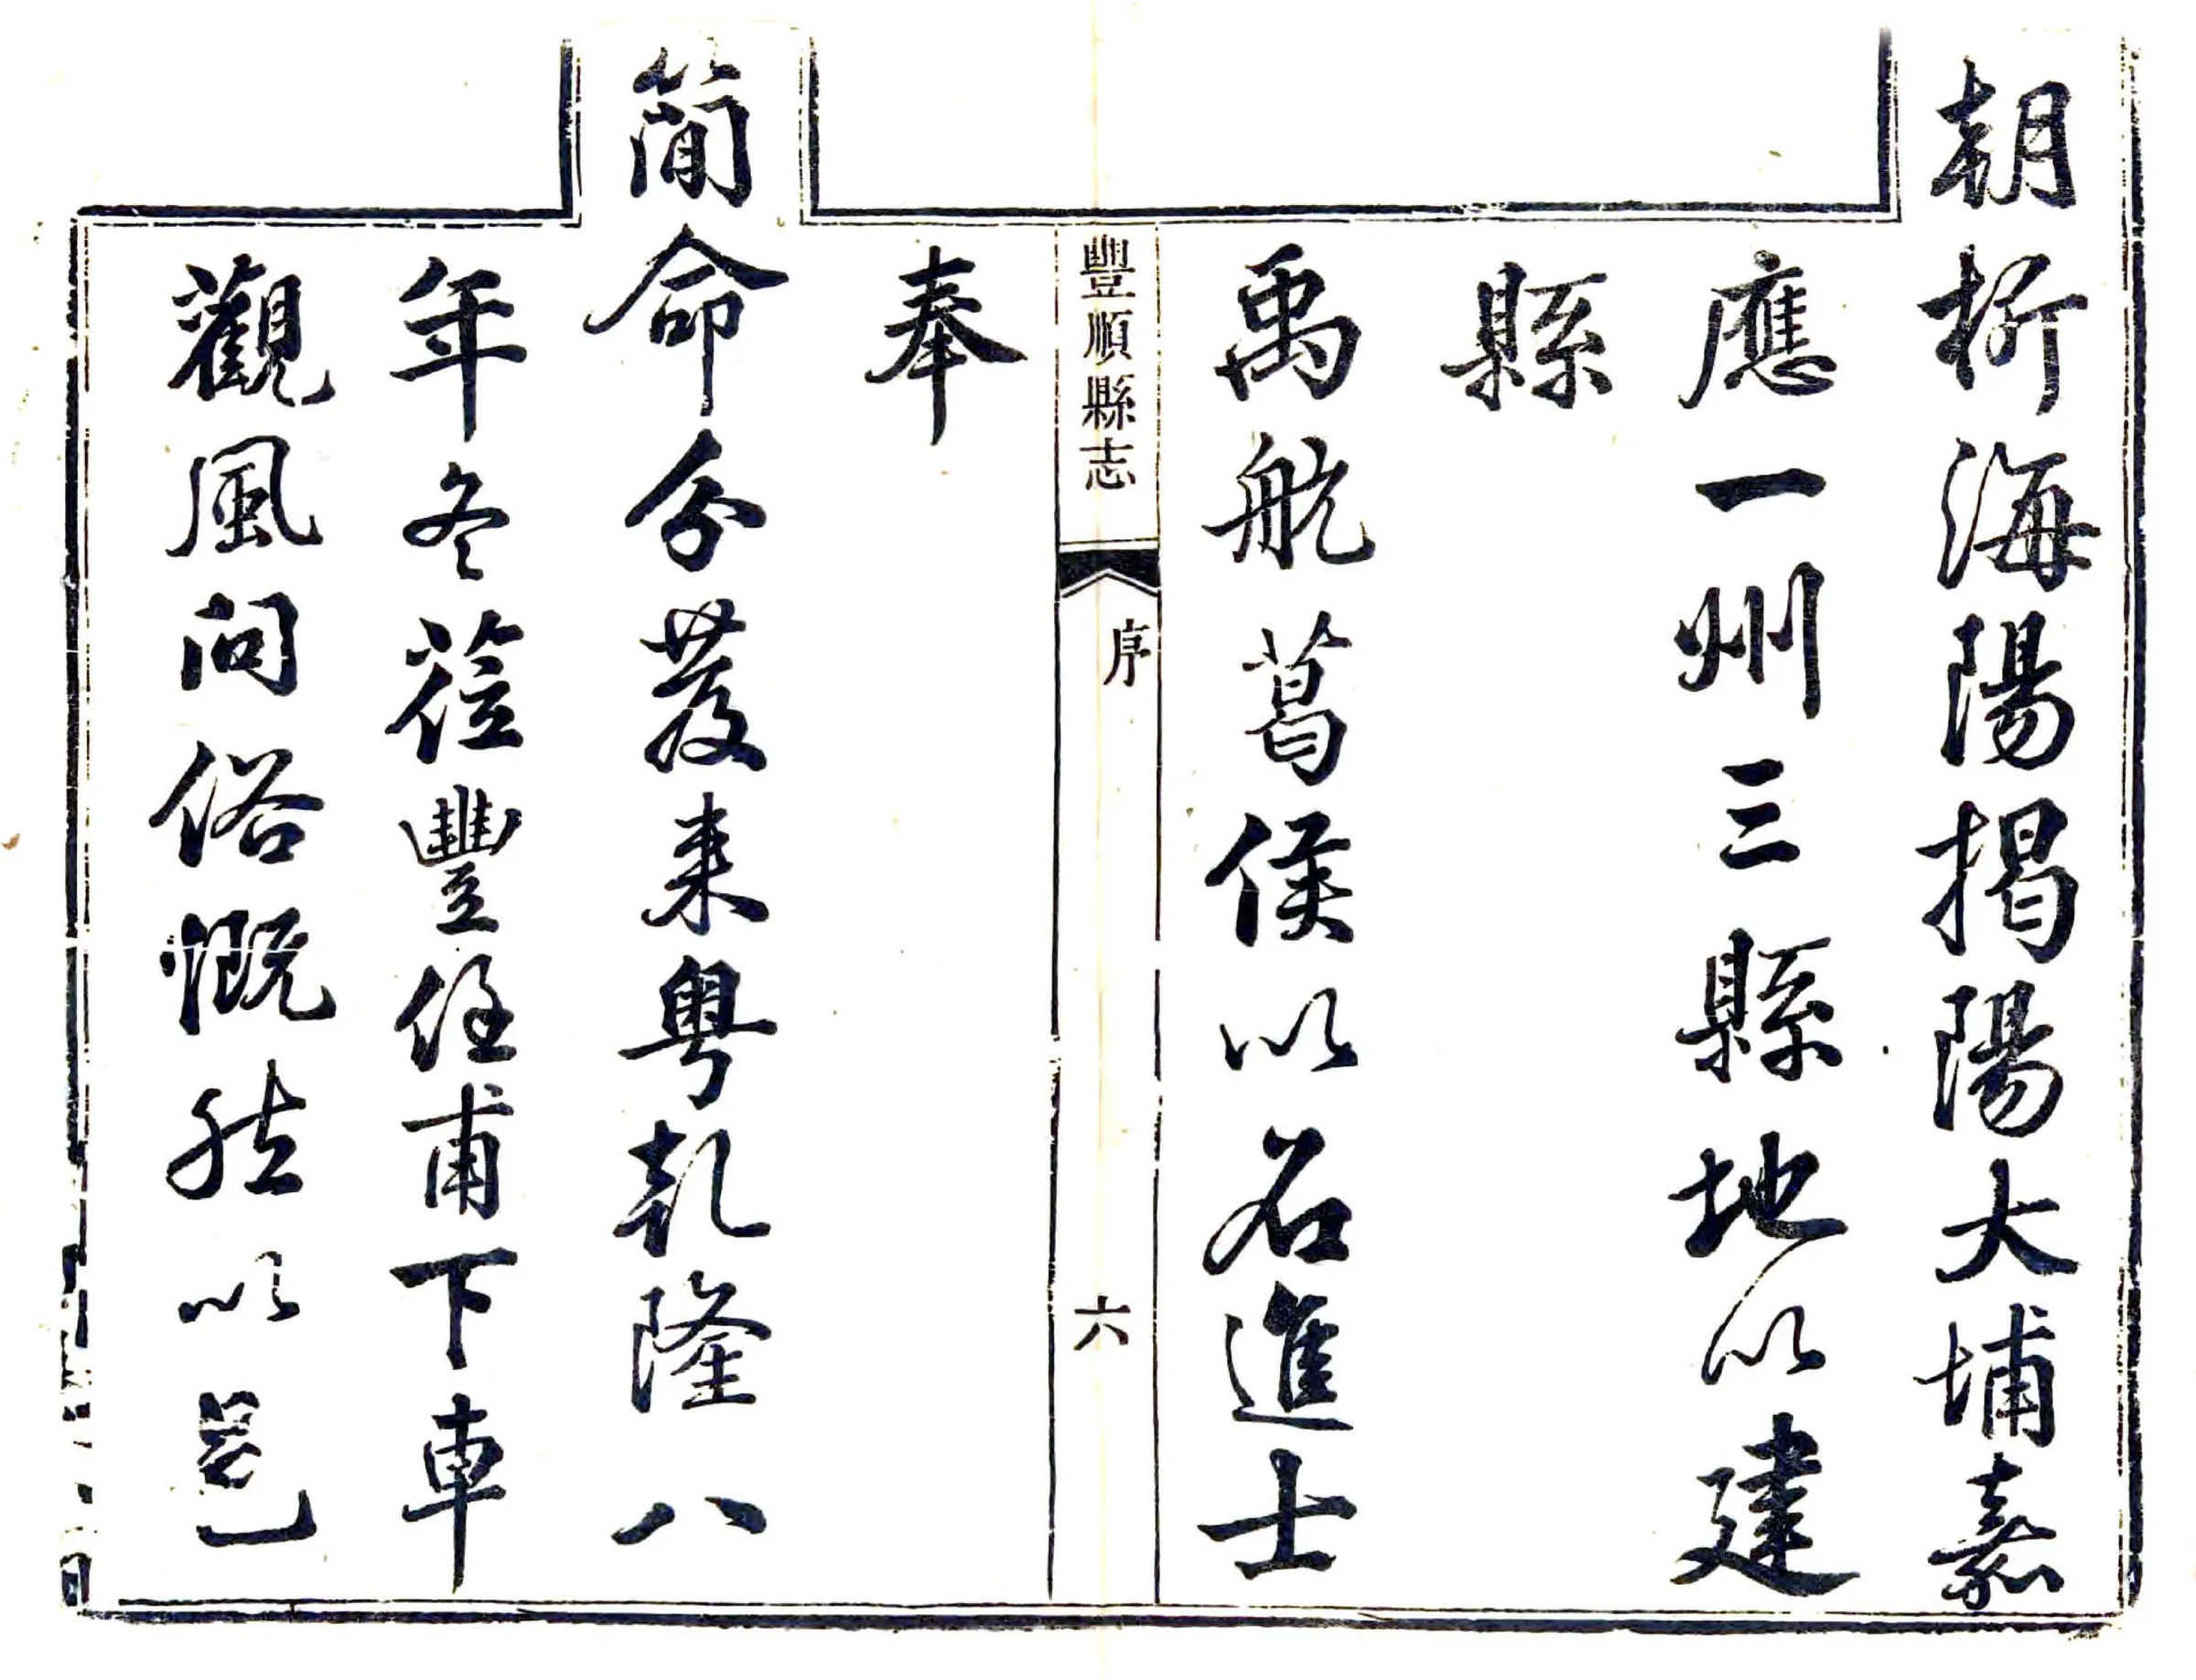 朝析海陽揭陽大埔嘉
應一州三縣地以建
縣
禹航葛侯以名進士
豐順縣志
序
六
奉
簡命分發来粤乾隆八
年冬蒞豐任甫下車
觀風問俗慨然以邑